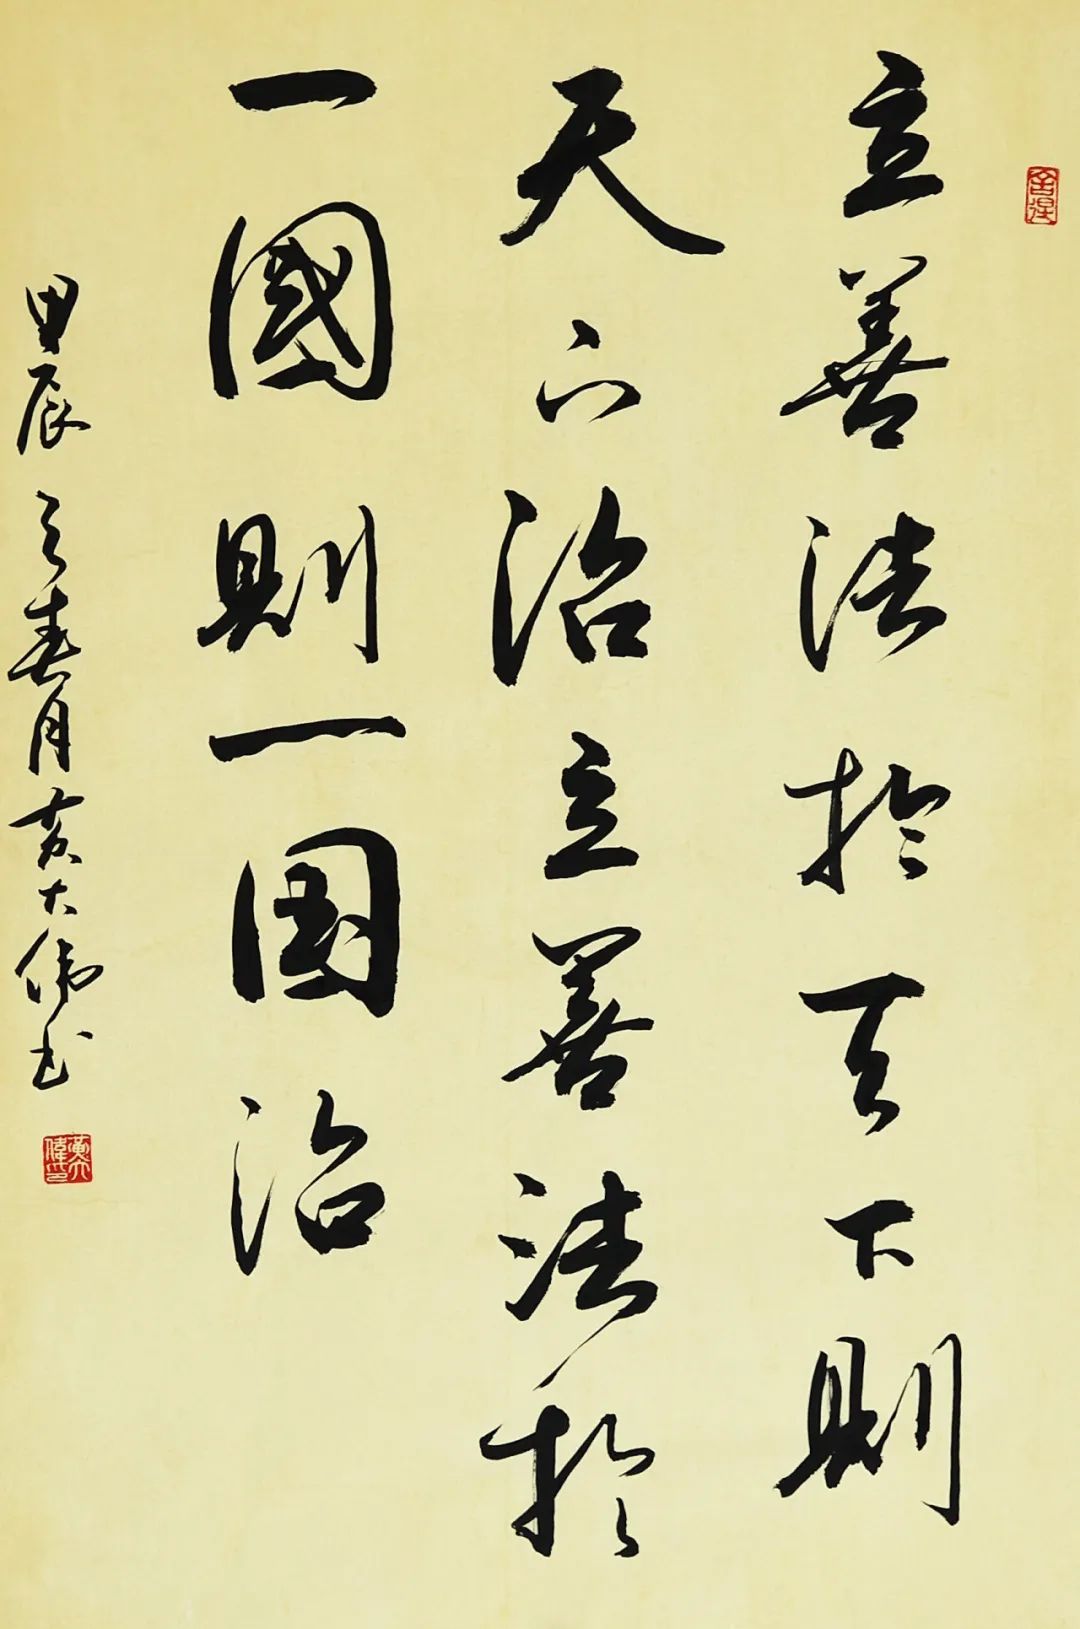 立善法於天下則
天下治立善法於
一國則一國治
甲辰之春月黄大伟书
黄大偉印